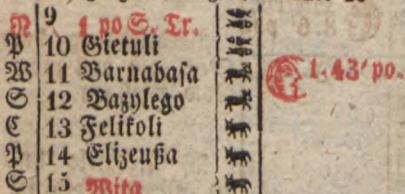 N 9 1 po S. Tr.
P 10 Gietuli
W 11 Barnabaſa 1. 43' po.
S 12 Bazylego
C 13 Felikoli
P 14 Elizeußa
S 15 Wita